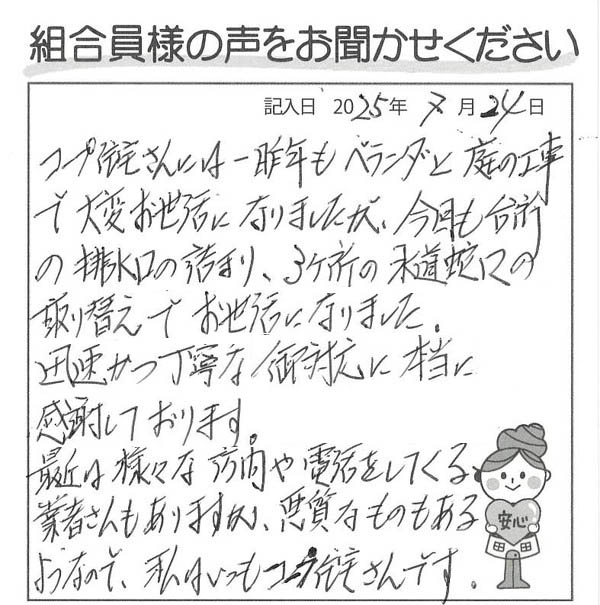 組合員様の声をお聞かせください
記入日 2025年 7月 24日
コープ住宅さんには一昨年もベランダと庭の工事
で大変お世話になりましたが、今回も台所
の排水口の詰まり、3ヶ所の水道蛇口の
取り替えでお世話になりました。
迅速かつ丁寧な御対応に本当に
感謝しております。
最近は様々な訪問や電話をしてくる
業者さんもありますが、悪質なものもある
ようなので、私はいつもコープ住宅さんです。
安心